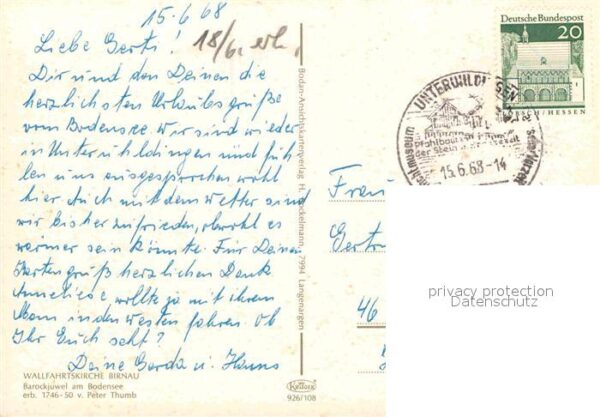 15.6.68
Liebe Gerti!
18/6. erh.
Dir und den Deinen die
herzlichsten Urlaubsgrüße
vom Bodensee. Wir sind wieder
in Unteruhldingen und füh-
len uns ausgesprochen wohl
hier. Auch mit dem Wetter sind
wir bisher zufrieden, obwohl es
wärmer sein könnte. Für Deinen
Kartengruß herzlichen Dank
Anneliese wollte ja mit ihrem
Mann in den Westen fahren. Ob
Ihr Euch seht?
Deine Gerda u. Hanns
WALLFAHRTSKIRCHE BIRNAU
Barockjuwel am Bodensee
erb. 1746-50 v. Peter Thumb
Bodan-Ansichtskartenverlag H. Böckelmann, 7994 Langenargen
926/108
Deutsche Bundespost
20
LORSCH/HESSEN
UNTERUHLDINGEN
Pfahlbauten
der Steinzeit
15.6.68-14
Frau
Gertr
46
privacy protection
Datenschutz